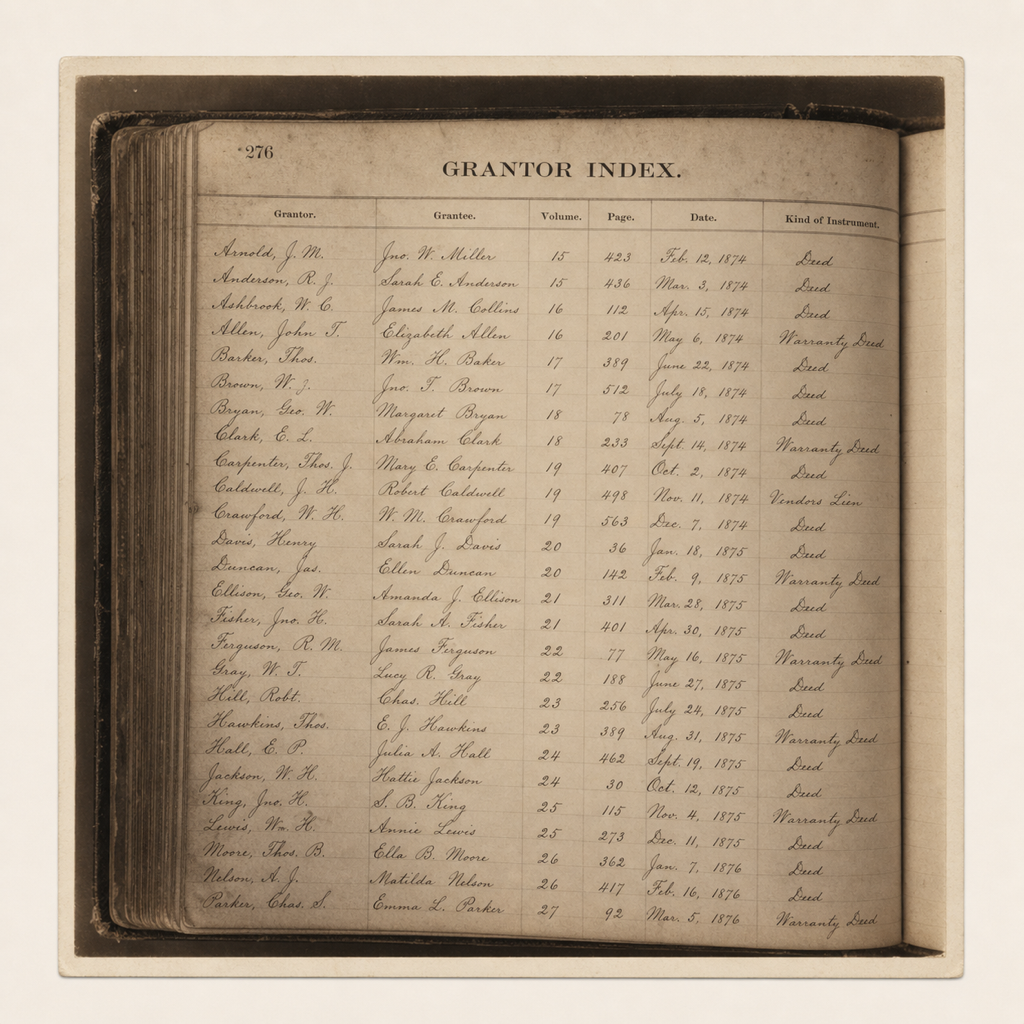 276
GRANTOR INDEX.
Grantor. Grantee. Volume. Page. Date. Kind of Instrument.
Arnold, J. M. Jno. W. Miller 15 423 Feb. 12, 1874 Deed
Anderson, R. J. Sarah E. Anderson 15 436 Mar. 3, 1874 Deed
Ashbrook, W. C. James M. Collins 16 112 Apr. 15, 1874 Deed
Allen, John T. Elizabeth Allen 16 201 May 6, 1874 Warranty Deed
Barker, Thos. Wm. H. Baker 17 389 June 22, 1874 Deed
Brown, W. J. Jno. T. Brown 17 512 July 18, 1874 Deed
Bryan, Geo. W. Margaret Bryan 18 78 Aug. 5, 1874 Deed
Clark, E. L. Abraham Clark 18 233 Sept. 14, 1874 Warranty Deed
Carpenter, Thos. J. Mary E. Carpenter 19 407 Oct. 2, 1874 Deed
Caldwell, J. H. Robert Caldwell 19 498 Nov. 11, 1874 Vendors Lien
Crawford, W. H. W. M. Crawford 19 563 Dec. 7, 1874 Deed
Davis, Henry Sarah J. Davis 20 36 Jan. 18, 1875 Deed
Duncan, Jas. Ellen Duncan 20 142 Feb. 9, 1875 Warranty Deed
Ellison, Geo. W. Amanda J. Ellison 21 311 Mar. 28, 1875 Deed
Fisher, Jno. H. Sarah A. Fisher 21 401 Apr. 30, 1875 Deed
Ferguson, R. M. James Ferguson 22 77 May 16, 1875 Warranty Deed
Gray, W. T. Lucy R. Gray 22 188 June 27, 1875 Deed
Hill, Robt. Chas. Hill 23 256 July 24, 1875 Deed
Hawkins, Thos. E. J. Hawkins 23 389 Aug. 31, 1875 Warranty Deed
Hall, E. P. Julia A. Hall 24 462 Sept. 19, 1875 Deed
Jackson, W. H. Hattie Jackson 24 30 Oct. 12, 1875 Deed
King, Jno. H. S. B. King 25 115 Nov. 4, 1875 Warranty Deed
Lewis, Wm. H. Annie Lewis 25 273 Dec. 11, 1875 Deed
Moore, Thos. B. Ella B. Moore 26 362 Jan. 7, 1876 Deed
Nelson, A. J. Matilda Nelson 26 417 Feb. 16, 1876 Deed
Parker, Chas. S. Emma L. Parker 27 92 Mar. 5, 1876 Warranty Deed